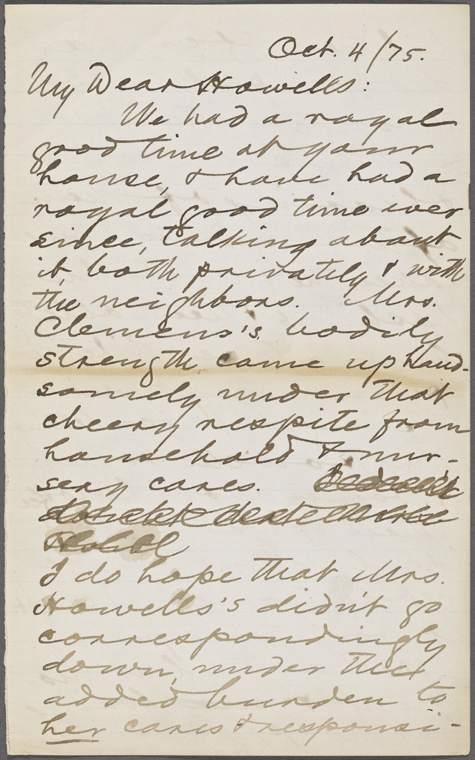 Oct. 4/75.
My Dear Howells:
We had a royal
good time at your
house, & have had a
royal good time ever
since, talking about
it, both privately & with
the neighbors. Mrs.
Clemens's bodily
strength came up hand-
somely under that
cheery respite from
household & nur-
sery cares.
I do hope that Mrs.
Howells's didn't go
correspondingly
down, under the
added burden to
her cares & responsi-